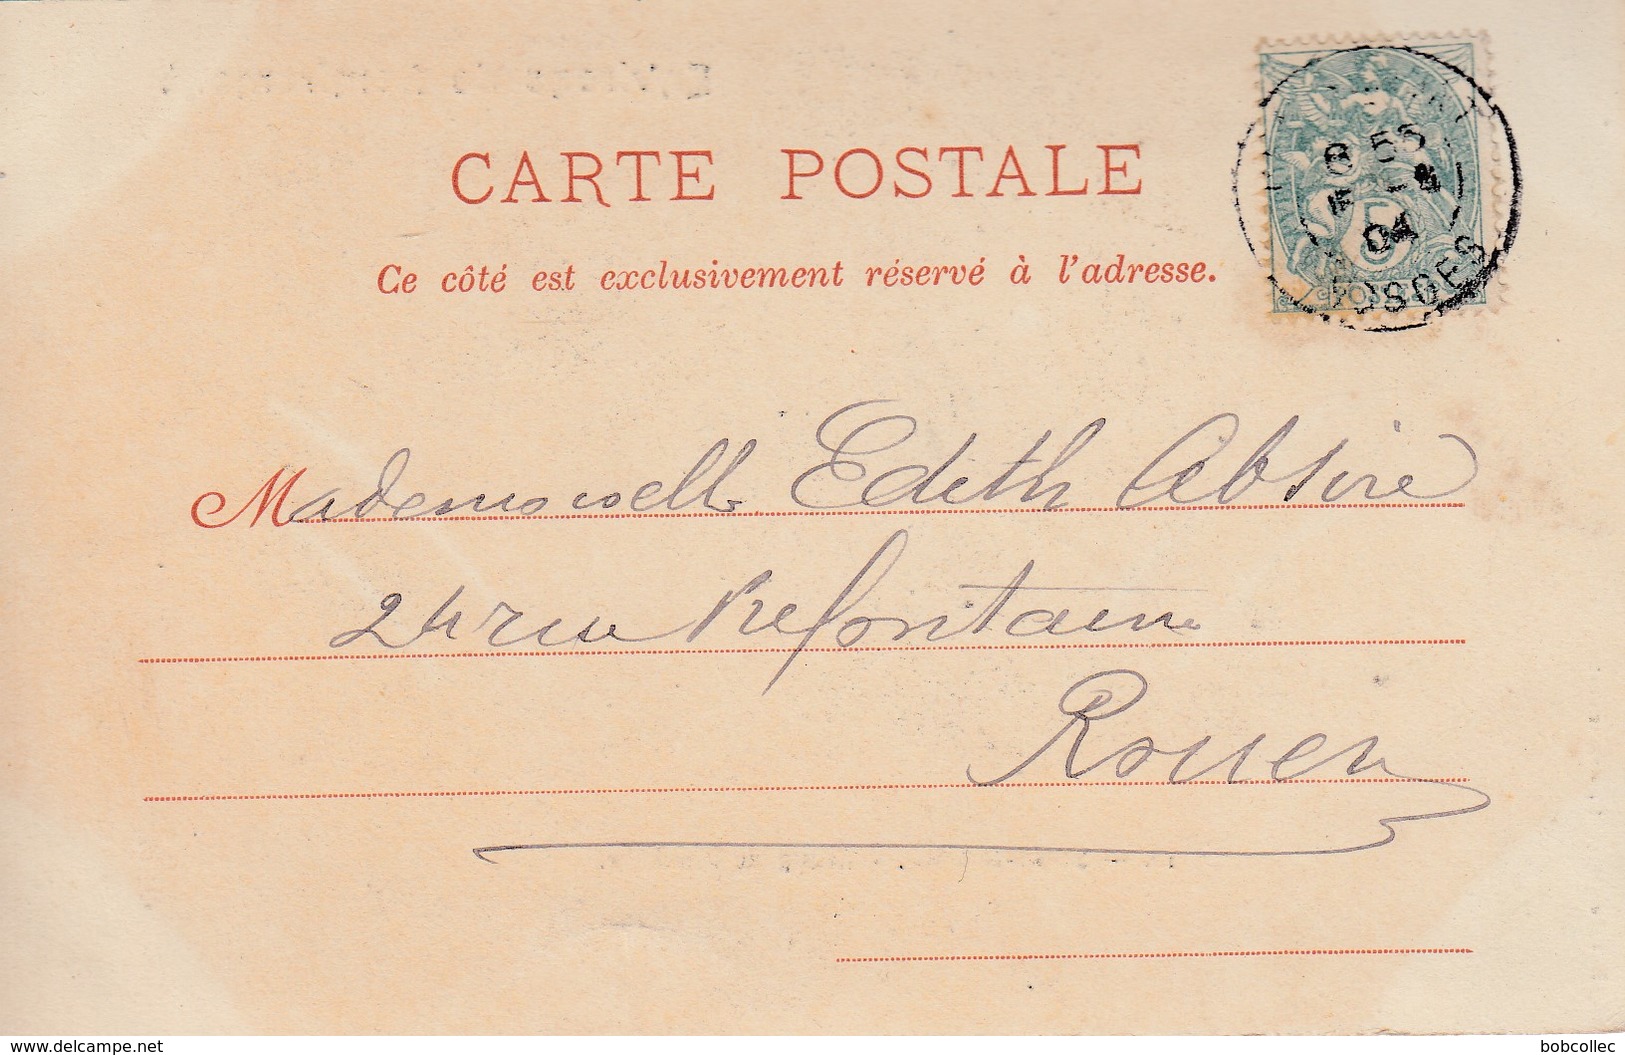 CARTE POSTALE
Ce côté est exclusivement réservé à l'adresse.
8 55
04
VOSGES
5
POSTE
Mademoiselle Edith Absire
24 rue Prefontaine
Rouen
www.delcampe.net
bobcollec